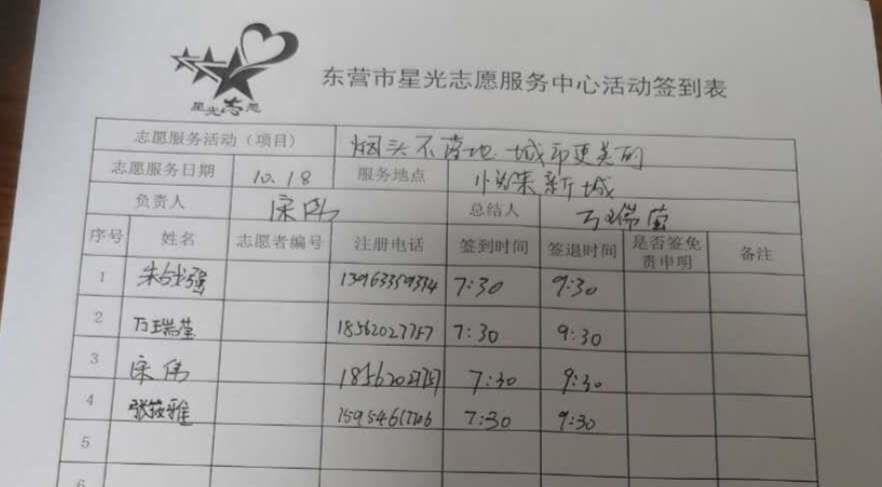 星光志愿
东营市星光志愿服务中心活动签到表
志愿服务活动（项目） 烟头不落地 城市更美丽
志愿服务日期 10.18 服务地点 新城
负责人 宋伟 总结人 万瑞莹
序号 姓名 志愿者编号 注册电话 签到时间 签退时间 是否签免责申明 备注
1 朱战强 7:30 9:30
2 万瑞莹 18562027757 7:30 9:30
3 宋伟 7:30 9:30
4 张筱雅 7:30 9:30
5
6